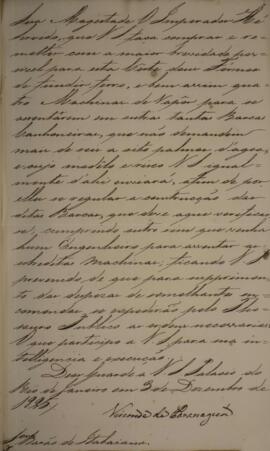 Sua Magestade O Imperador Ha
por bem, que V S faça comprar e re-
metter com a maior brevidade pos-
sivel para esta Corte, dous Fornos
de fundir ferro, e bem assim qua-
tro Machinas de Vapor para se
assentarem em outras tantas Barcas
Canhoneiras, que não demandem
mais de seis a sete palmos d'agoa,
e cujo modelo e risco V S igual-
mente d'ahi enviará, afim de por
elle se regular a construcção das
ditas Barcas, que deve aqui verificar-
se, cumprindo outro sim que venha
hum Engenheiro para assentar as
sobreditas Machinas; ficando V S
prevenido, de que para supprimento
das despezas de semelhantes en-
commendas, se expedirão pelo The-
souro Publico as ordens necessarias.
O que participo a V S para sua in-
telligencia e execução.
Deos Guarde a V S Palacio do
Rio de Janeiro em 3 de Dezembro de
1825.
Visconde de Paranaguá
Snr. Barão de Itabaiana.